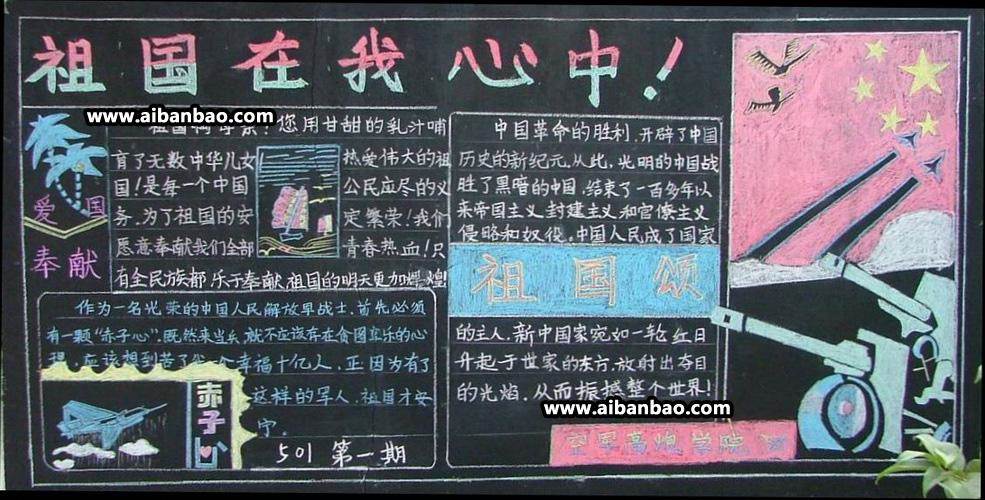 祖国在我心中!
www.aibanbao.com
您用甘甜的乳汁哺
育了无数中华儿女! 热爱伟大的祖
国!是每一个中国 公民应尽的义
务.为了祖国的安 定繁荣!我们
愿意奉献我们全部 青春热血!只
有全民族都乐于奉献.祖国的明天更加辉煌
爱国
奉献
作为一名光荣的中国人民解放军战士.首先必须
有一颗"赤子心".既然来当兵就不应该存在贪图享乐的心
理.应该想到苦了我一个幸福十亿人.正因为有了
这样的军人.祖国才安
宁.
赤子心
501 第一期
中国革命的胜利.开辟了中国
历史的新纪元.从此.光明的中国战
胜了黑暗的中国.结束了一百多年以
来帝国主义.封建主义和官僚主义
侵略和奴役.中国人民成了国家
祖国颂
的主人.新中国家宛如一轮红日
升起于世家的东方.放射出夺目
的光焰.从而振撼整个世界!
www.aibanbao.com
空军高炮学院